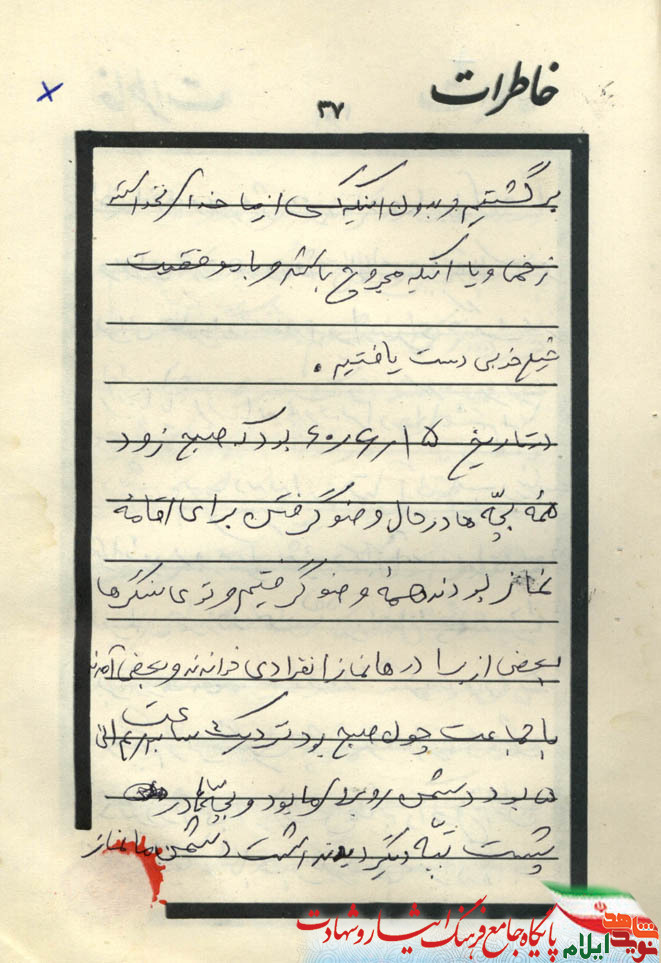 خاطرات
۳۷
برگشتیم و بدون اینکه کسی از ما خدای نخواسته
زخما و یا آنکه مجروح باشد و با موفقیت
خیلی خوبی دست یافتیم .
در تاریخ ۱۵ ر ۶ ر ۶۰ بود که صبح زود
همهٔ بچّه ها در حال وضو گرفتن برای اقامهٔ
نماز بودند همهٔ وضو گرفتیم و توی سنگرها
بعضی از برادرها نماز انفرادی خواندند و بعضی آمدند
با جماعت چون صبح بود نزدیک ساعت
۵ بود دشمن روبروی ما بود و بچّه‌ها در
پشت تپّه دیگر دشمن ما نماز
پایگاه جامع فرهنگ ایثار و شهادت
نوید شاهد ایلام